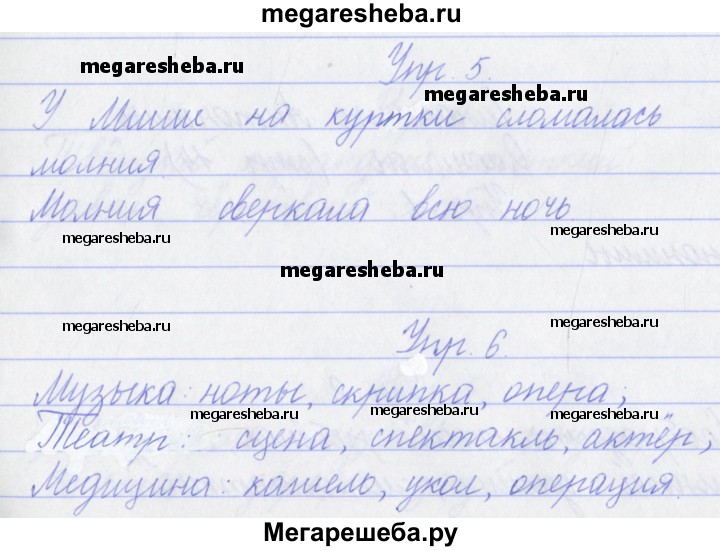 megaresheba.ru
megaresheba.ru
Упр. 5.
megaresheba.ru
У Миши на куртки сломалась
молния.
Молния сверкала всю ночь.
megaresheba.ru
megaresheba.ru
megaresheba.ru
megaresheba.ru
megaresheba.ru
Упр. 6.
Музыка: ноты, скрипка, опера;
megaresheba.ru
megaresheba.ru
megaresheba.ru
Театр: сцена, спектакль, актёр;
Медицина: кашель, укол, операция.
Мегарешеба.ру